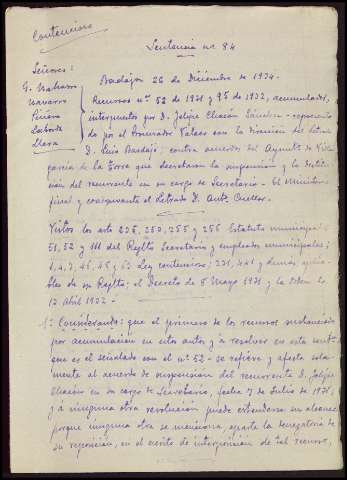 Contencioso
Sentencia nº 84
Señores:
G. Navarro
Navarro
Piñero
Laborda
Llera
Badajoz 26 de Diciembre de 1934.
Recursos nos. 52 de 1931 y 95 de 1932, acumulados,
interpuestos por D. Felipe Chacón Sánchez - representa
do por el Procurador Palaco con la dirección del Letrado
D. Luis Bardají; contra acuerdos del Ayunto. de Villa
garcía de la Torre que decretaron la suspensión y la destitu
ción del recurrente en su cargo de Secretario. El Ministerio
fiscal y coadyuvante el Letrado D. Anto. Cuéllar.
Vistos los arts 235, 250, 255 y 256 Estatuto municipal;
51, 52 y 111 del Reglto Secretarios y empleados municipales;
1, 4, 7, 46, 48 y 62 Ley contencioso; 231, 441 y demás aplica
bles de su Reglto; el Decreto de 8 Mayo 1931 y la Orden de
12 Abril 1932.-
1º Considerando: que el primero de los recursos sustanciados
por acumulación en estos autos y a resolver en esta sent.
que es el señalado con el nº 52 - se refiere y afecta sola
mente al acuerdo de suspensión del recurrente D. Felipe
Chacón en su cargo de Secretario, fecha 7 de Julio de 1931,
y á ninguna otra resolución puede extenderse su alcance
porque ninguna otra se menciona, aparte la denegatoria de
su reposición, en el escrito de interposición de tal recurso,